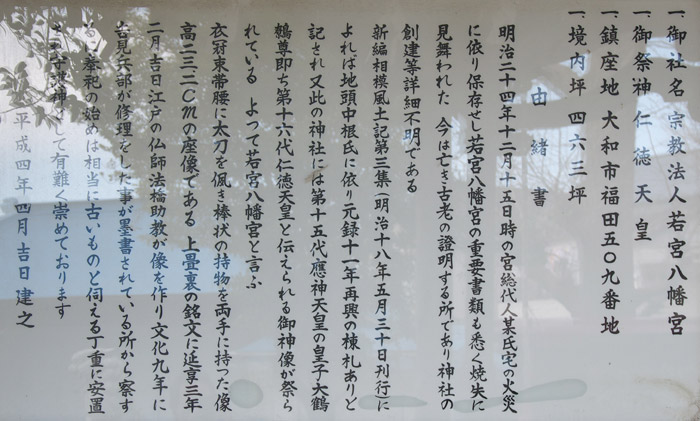 一、御社名 宗教法人若宮八幡宮
一、御祭神 仁徳天皇
一、鎮座地 大和市福田五〇九番地
一、境内坪 四六三坪
由緒書
明治二十四年十二月十五日時の宮総代人某氏宅の火災
に依り保存せし若宮八幡宮の重要書類も悉く焼失に
見舞われた 今は亡き古老の證明する所であり神社の
創建等詳細不明である
新編相模風土記第三集(明治十八年五月三十日刊行に
よれば地頭中根氏に依り元録十一年再興の棟札ありと
記され又此の神社には第十五代應神天皇の皇子大鶴
鷯尊即ち第十六代仁徳天皇と伝えられる御神像が祭ら
れている よって若宮八幡宮と言ふ
衣冠束帯腰に太刀を佩き棒状の持物を両手に持った像
高二三、二CMの座像である 上畳裏の銘文に延享三年
二月吉日江戸の仏師法橋助教が像を作り文化九年に
吉見兵部が修理をした事が墨書されている所から察す
るに奉祀の始めは相当に古いものと伺える丁重に安置
され守護神として有難く崇めております
平成四年四月吉日建之